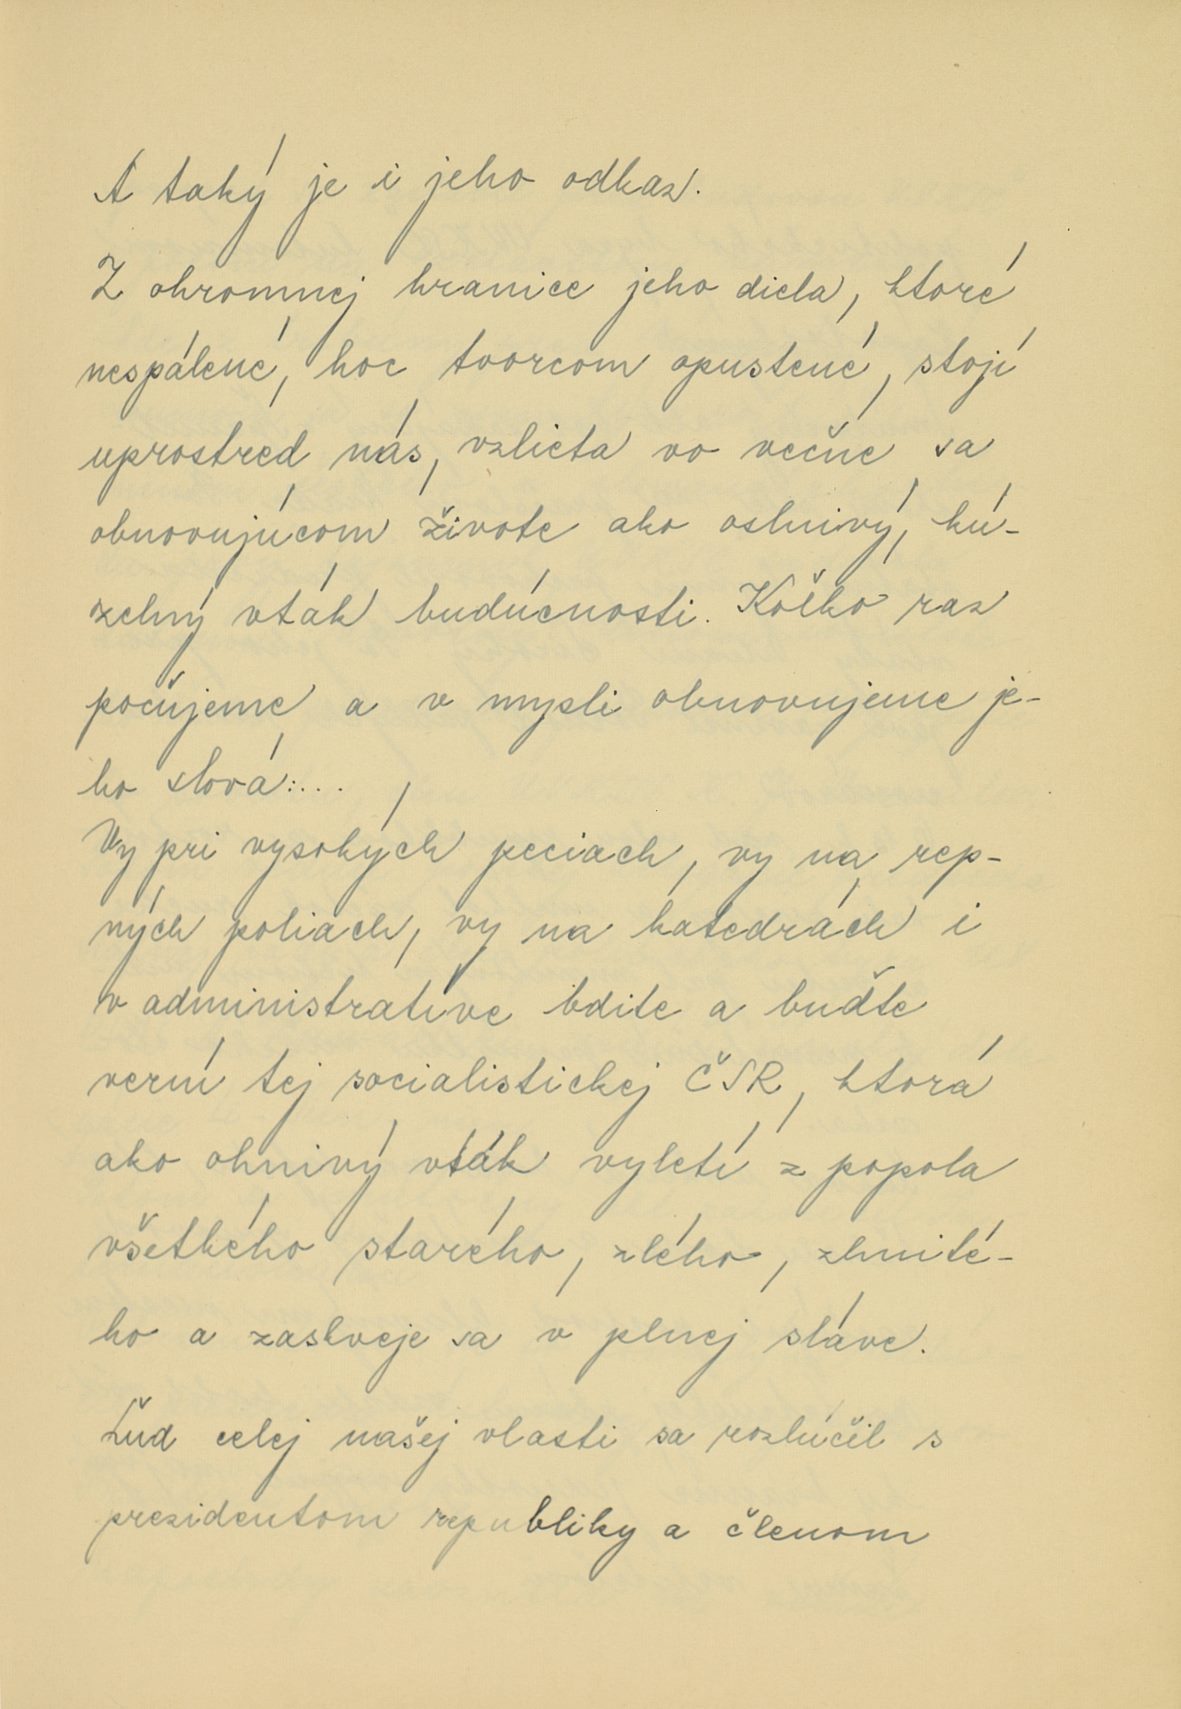 A taký je i jeho odkaz.
Z ohromnej hranice jeho diela, ktoré
nespálené, hoc tvorcom opustené, stojí
uprostred nás, vzlieta vo večne sa
obnovujúcom živote ako oslnivý, kú-
zelný vták budúcnosti. Koľko raz
počujeme a v mysli obnovujeme je-
ho slová:...
Vy pri vysokých peciach, vy na rep-
ných poliach, vy na katedrách i
v administratíve bdite a buďte
verní tej socialistickej ČSR, ktorá
ako ohnivý vták vyletí z popola
všetkého starého, zlého, zhnité-
ho a zaskveje sa v plnej sláve.
Ľud celej našej vlasti sa rozlúčil s
prezidentom republiky a členom